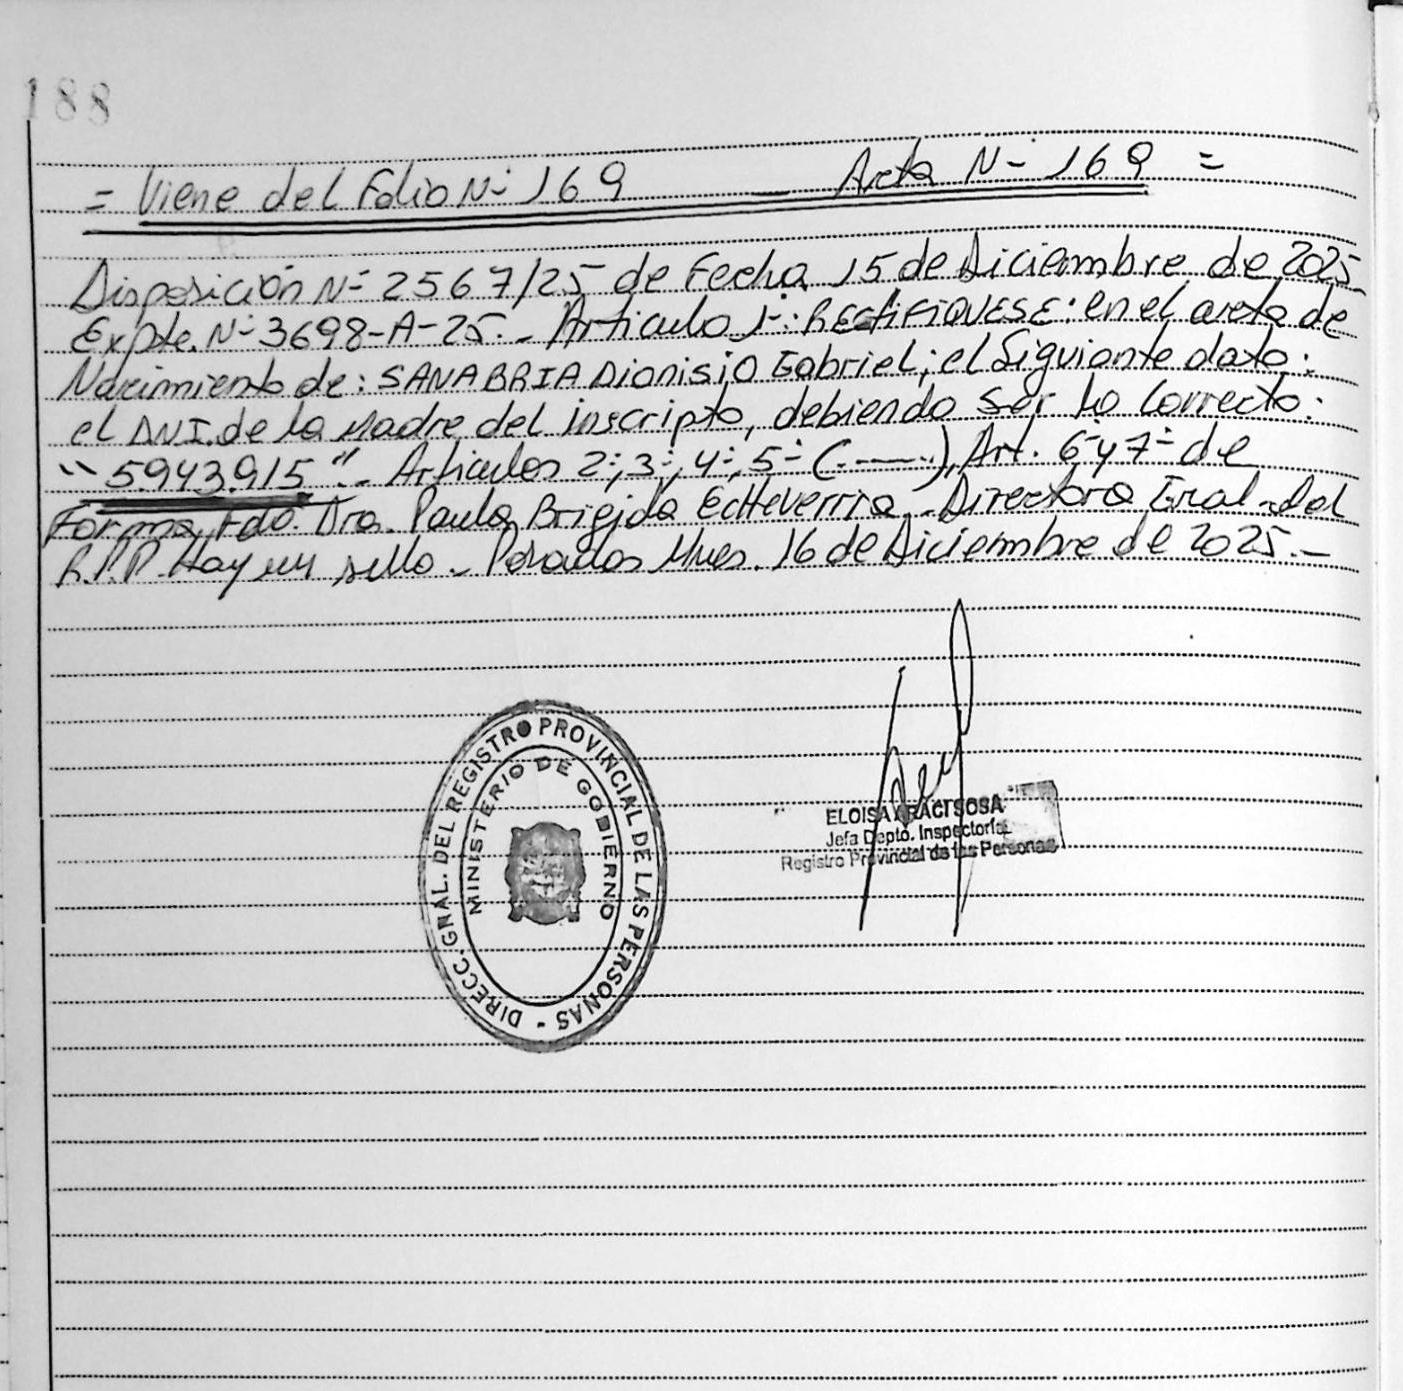 188
= Viene del Folio Nº 169 — Acta Nº 169 =
Disposición Nº 2567/25 de Fecha 15 de Diciembre de 2025
Expte. Nº 3698-A-25.- Articulo 1º: RECTIFIQUESE: en el acta de
Nacimiento de: SANABRIA Dionisio Gabriel; el Siguiente dato:
el DNI. de la Madre del inscripto, debiendo ser lo Correcto:
"5.943.915".- Articulos 2º, 3º, 4º, 5º (.----.), Art. 6º y 7º de
Forma, Fdo. Dra. Paula Brigida Echeverria - Directora Gral. del
R.P.P. Hay un sello.- Posadas Mnes. 16 de Diciembre de 2025.-
DIRECC. GRAL. DEL REGISTRO PROVINCIAL DE LAS PERSONAS -
MINISTERIO DE GOBIERNO
ELOISA ARACI SOSA
Jefa Depto. Inspectoría
Registro Provincial de las Personas